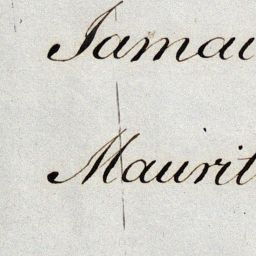 Jamai
Maurit